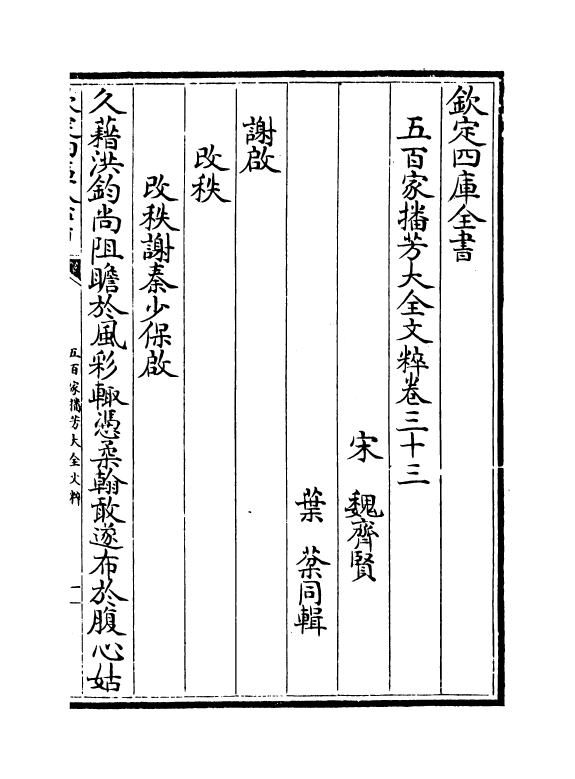 欽定四庫全書
五百家播芳大全文粹卷三十三
宋 魏齊賢
葉棻同輯
謝啟
改秩
改秩謝秦少保啟
久藉洪鈞尚阻瞻於風彩輙憑柔翰敢遂布於腹心姑
五百家播芳大全文粹
一